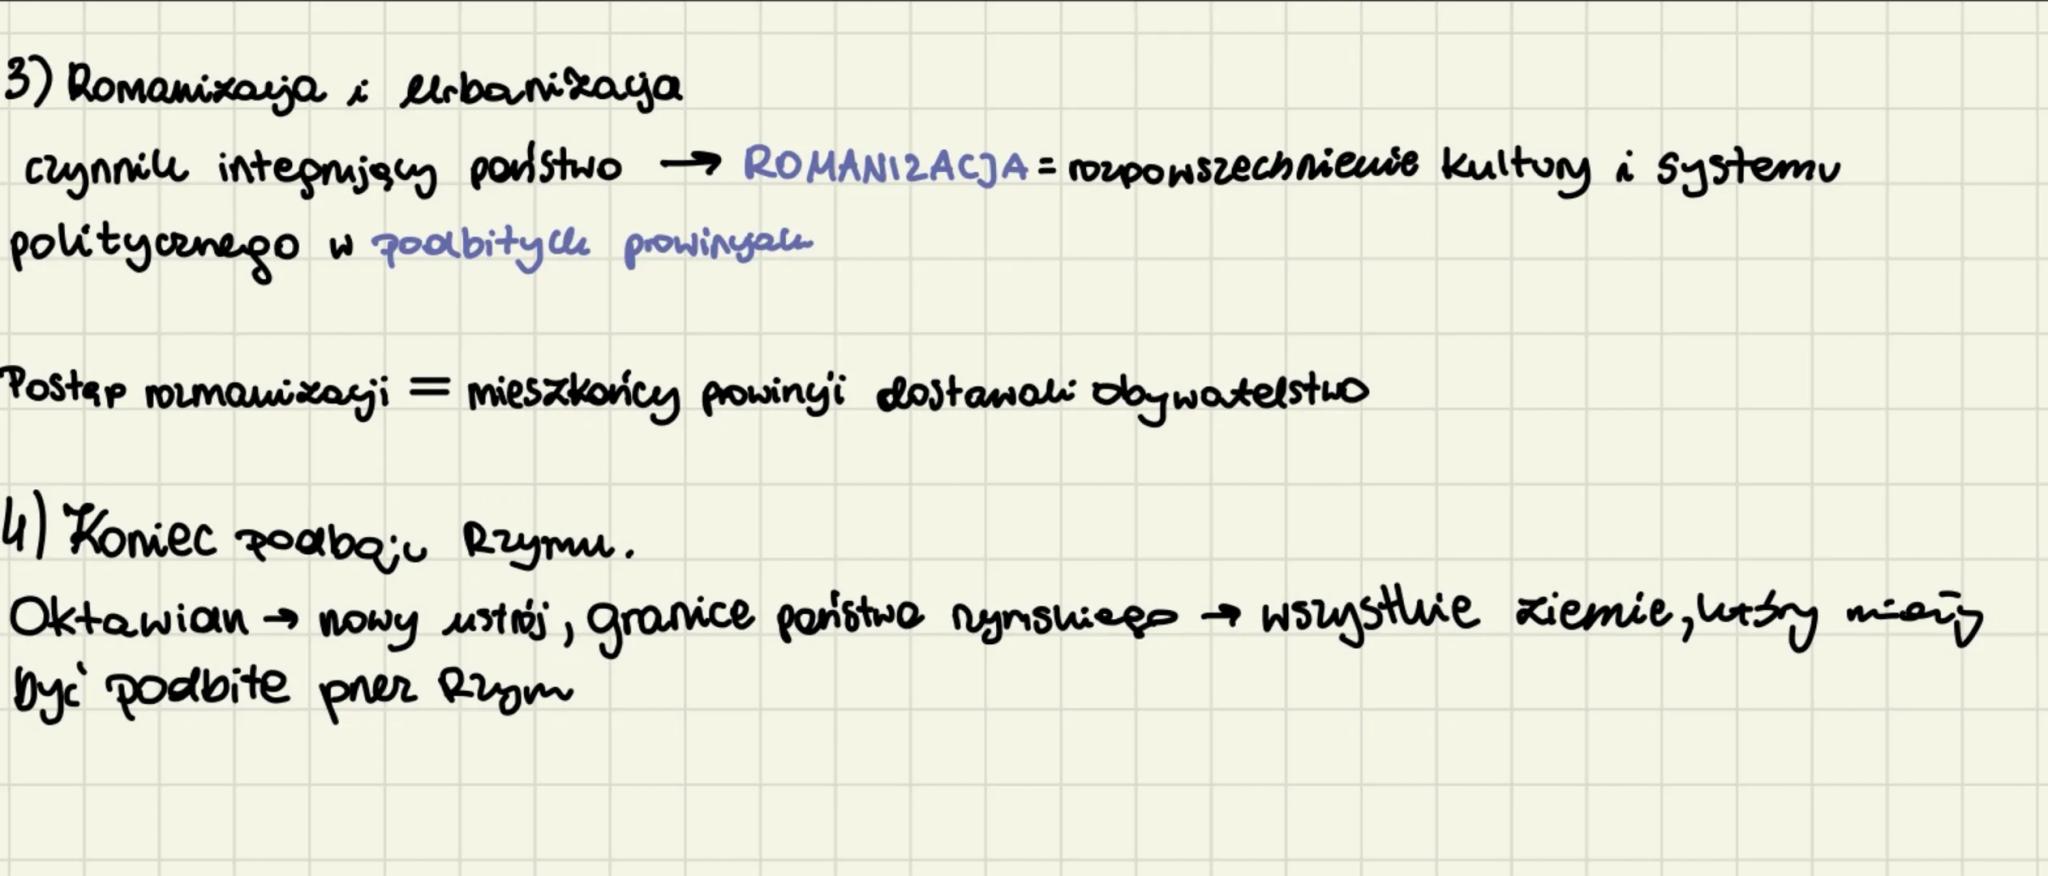 3) Romanizacja i Urbanizacja
czynnik integrujący państwo → ROMANIZACJA = rozpowszechnienie kultury i systemu
politycznego w podbitych prowincjach
Postęp rozmanizacji = mieszkańcy prowincji dostawali obywatelstwo
4) Koniec podboju Rzymu.
Oktawian → nowy ustrój, granice państwa rzymskiego → wszystkie ziemie, który miały
być podbite przez Rzym